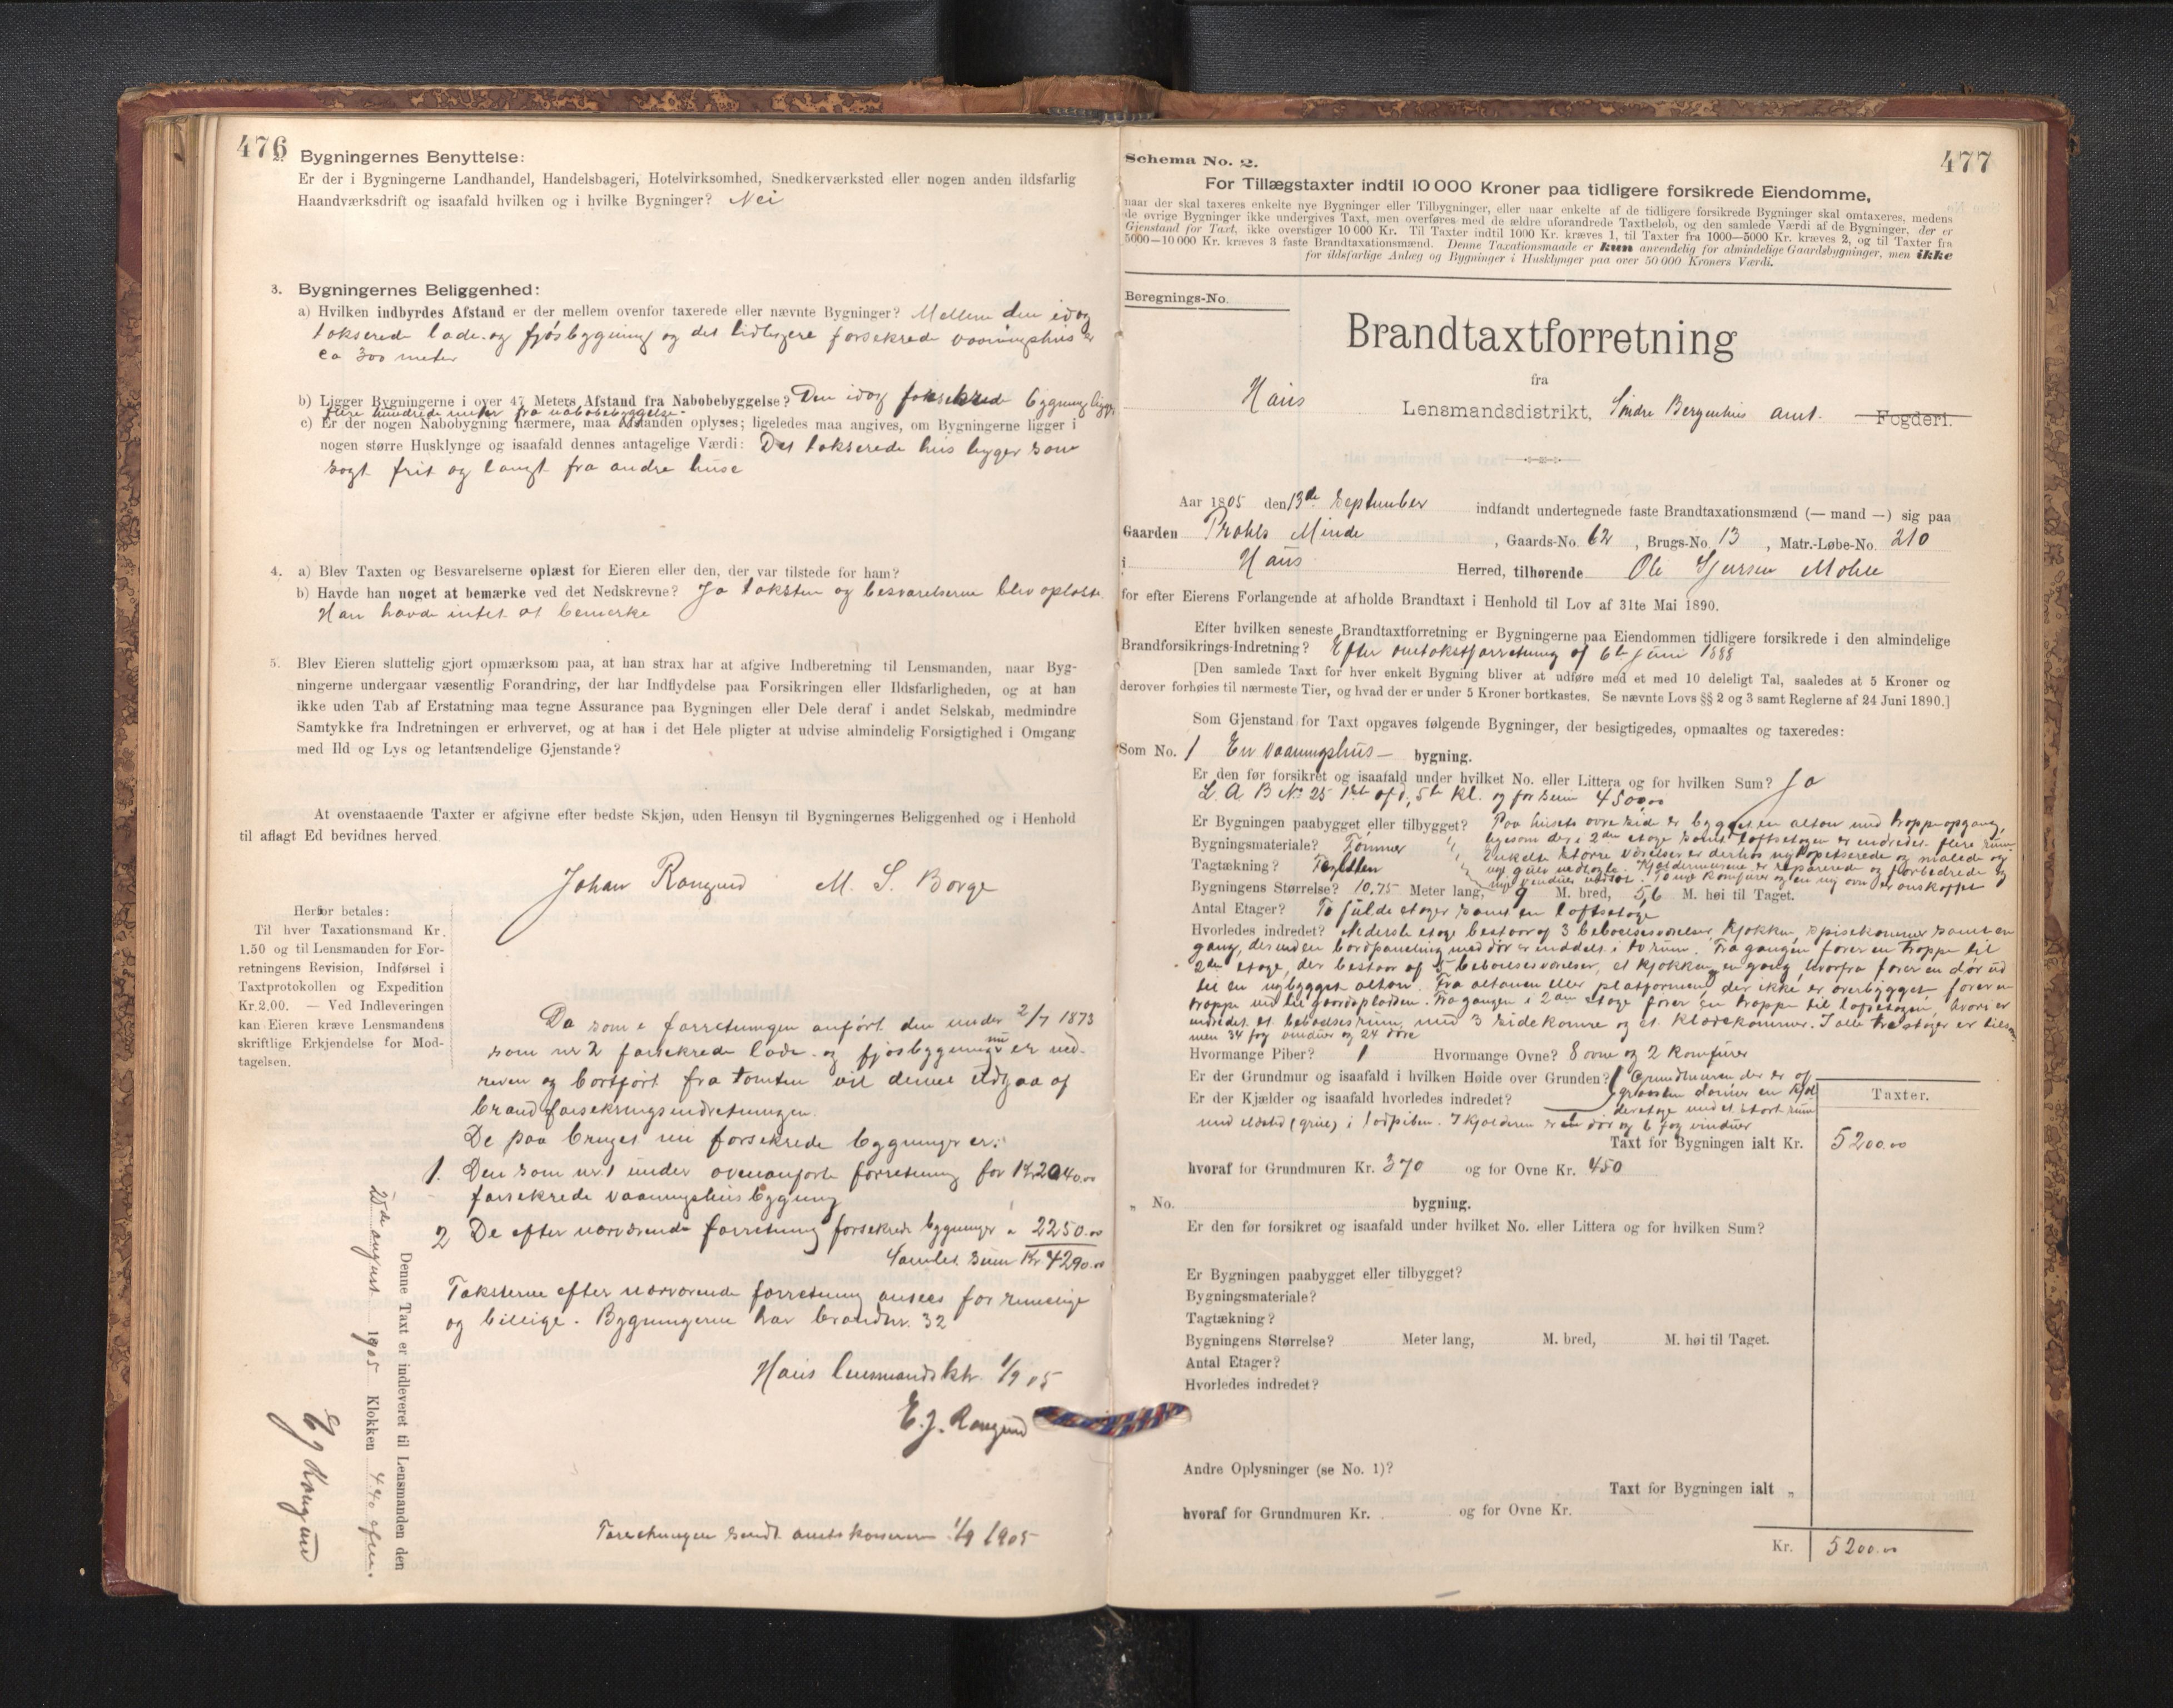 476
2. Bygningernes Benyttelse:
Er der i Bygningerne Landhandel, Handelsbageri, Hotelvirksomhed, Snedkerværksted eller nogen anden ildsfarlig
Haandværksdrift og isaafald hvilken og i hvilke Bygninger? Nei
3. Bygningernes Beliggenhed:
a) Hvilken indbyrdes Afstand er der mellem ovenfor taxerede eller nævnte Bygninger? Mellem den idag
takserede lade- og fjøsbygning og det tidligere forsekrede vaaningshus er
ca 300 meter
b) Ligger Bygningerne i over 47 Meters Afstand fra Nabobebyggelse? Den idag forsekrede bygning ligger
flere hundrede meter fra nabobebyggelse.
c) Er der nogen Nabobygning nærmere, maa Afstanden oplyses; ligeledes maa angives, om Bygningerne ligger i
nogen større Husklynge og isaafald dennes antagelige Værdi: Det takserede hus ligger som
sagt frit og langt fra andre huse
4. a) Blev Taxten og Besvarelserne oplæst for Eieren eller den, der var tilstede for ham?
b) Havde han noget at bemærke ved det Nedskrevne? Ja taksten og besvarelserne blev oplæst.
Han havde intet at bemerke
5. Blev Eieren sluttelig gjort opmærksom paa, at han strax har at afgive Indberetning til Lensmanden, naar Byg-
ningerne undergaar væsentlig Forandring, der har Indflydelse paa Forsikringen eller Ildsfarligheden, og at han
ikke uden Tab af Erstatning maa tegne Assurance paa Bygningen eller Dele deraf i andet Selskab, medmindre
Samtykke fra Indretningen er erhvervet, og at han i det Hele pligter at udvise almindelig Forsigtighed i Omgang
med Ild og Lys og letantændelige Gjenstande?
At ovenstaaende Taxter er afgivne efter bedste Skjøn, uden Hensyn til Bygningernes Beliggenhed og i Henhold
til aflagt Ed bevidnes herved.
Johan M. S. Borge
Herfor betales:
Til hver Taxationsmand Kr.
1.50 og til Lensmanden for For-
retningens Revision, Indførsel i
Taxtprotokollen og Expedition
Kr. 2.00. — Ved Indleveringen
kan Eieren kræve Lensmandens
skriftlige Erkjendelse for Mod-
tagelsen.
Da som i forretningen anført den under 2/7 1873
som nr 2 forsekrede lade- og fjøsbygning nu er ned-
reven og bortført fra tomten vil denne udgaa af
brandforsekringsindretningen.
De paa bruget nu forsekrede bygninger er:
1. Den som nr 1 under ovenanførte forretning for Kr 2040.00
forsekrede vaaningshusbygning
2 De efter nærværende forretning forsekrede bygninger " 2250.00
Samlet sum Kr 4290.00
Taksterne efter nærværende forretning ansees for rimelige
og billige. Bygningerne har brandnr. 32
Haus lensmandsktr. 1/9 05
E. J.
Forretningen sendt amtskasseren 1/9 1905
Denne Taxt er indleveret til Lensmanden den
25de august 1905 Klokken 4 40 efm.
477
Schema No. 2.
For Tillægstaxter indtil 10 000 Kroner paa tidligere forsikrede Eiendomme,
naar der skal taxeres enkelte nye Bygninger eller Tilbygninger, eller naar enkelte af de tidligere forsikrede Bygninger skal omtaxeres, medens
de øvrige Bygninger ikke undergives Taxt, men overføres med de ældre uforandrede Taxtbeløb, og den samlede Værdi af de Bygninger, der er
Gjenstand for Taxt, ikke overstiger 10 000 Kr. Til Taxter indtil 1000 Kr. kræves 1, til Taxter fra 1000—5000 Kr. kræves 2, og til Taxter fra
5000—10 000 Kr. kræves 3 faste Brandtaxationsmænd. Denne Taxationsmaade er kun anvendelig for almindelige Gaardsbygninger, men ikke
for ildsfarlige Anlæg og Bygninger i Husklynger paa over 50 000 Kroners Værdi.
Beregnings-No.
Brandtaxtforretning
fra
Haus Lensmandsdistrikt, Søndre Bergenhus amt. Fogderi.
Aar 1905 den 13de September indfandt undertegnede faste Brandtaxationsmænd (— mand —) sig paa
Gaarden Minde, Gaards-No. 62, Brugs-No. 13, Matr.-Løbe-No. 210
i Haus Herred, tilhørende Ole
for efter Eierens Forlangende at afholde Brandtaxt i Henhold til Lov af 31te Mai 1890.
Efter hvilken seneste Brandtaxtforretning er Bygningerne paa Eiendommen tidligere forsikrede i den almindelige
Brandforsikrings-Indretning? Efter omtakstforretning af 6te juni 1888
[Den samlede Taxt for hver enkelt Bygning bliver at udføre med et med 10 deleligt Tal, saaledes at 5 Kroner og
derover forhøies til nærmeste Tier, og hvad der er under 5 Kroner bortkastes. Se nævnte Lovs §§ 2 og 3 samt Reglerne af 24 Juni 1890.]
Som Gjenstand for Taxt opgaves følgende Bygninger, der besigtigedes, opmaaltes og taxeredes:
Som No. 1 En vaaningshus- bygning.
Er den før forsikret og isaafald under hvilket No. eller Littera og for hvilken Sum? Ja
L. A B No 25 og for sum 4500.00
Er Bygningen paabygget eller tilbygget? Paa husets øvre side er bygget en altan med trappeopgang,
ligesom der i 2den etage samt loftsetagen er indredet flere rum
Bygningsmateriale? Tømmer
enkelte større værelser er derhos nytapetserede og malede og
Tagtækning? Taglsten
nye gulv nedlagte. Kjeldermurene er reparerede og forbedrede og
nye vinduer indsat. To nye komfurer og en ny ovn er anskaffet
Bygningens Størrelse? 10.75 Meter lang, 9 M. bred, 5,6 M. høi til Taget.
Antal Etager? To fulde etager samt en loftsetage
Hvorledes indredet? Nederste etage bestaar af 3 beboelsesværelser, kjøkken, spisekammer samt en
gang, der med en bordpaneling med dør er inddelt i to rum. Fra gangen fører en trappe til
2den etage, der bestaar af 5 beboelsesværelser, et kjøkken, en gang, hvorfra fører en dør ud
til en nybygget altan. Fra altanen eller platformen, der ikke er overbygget, fører en
trappe ned til gaardspladsen. Fra gangen i 2den etage fører en trappe til loftsetagen, hvori er
indredet et beboelsesrum med 3 sidekamre og et klædekammer. I alle tre etager er tilsam-
men 34 fag vinduer og 24 døre
Hvormange Piber? 1 Hvormange Ovne? 8 ovne og 2 komfurer
Er der Grundmur og isaafald i hvilken Høide over Grunden? Grundmuren der er af
Er der Kjælder og isaafald hvorledes indredet? graasten danner en kjel-
deretage med et stort rum
med ildsted (grue) i 1 odpiben. I kjelderen er en dør og 6 fag vinduer
Taxter.
Taxt for Bygningen ialt Kr. 5200.00
hvoraf for Grundmuren Kr. 370 og for Ovne Kr. 450
„ No. bygning.
Er den før forsikret og isaafald under hvilket No. eller Littera og for hvilken Sum?
Er Bygningen paabygget eller tilbygget?
Bygningsmateriale?
Tagtækning?
Bygningens Størrelse? Meter lang, M. bred, M. høi til Taget.
Antal Etager?
Hvorledes indredet?
Andre Oplysninger (se No. 1)?
Taxt for Bygningen ialt „
hvoraf for Grundmuren Kr. og for Ovne Kr.
Kr. 5200.00